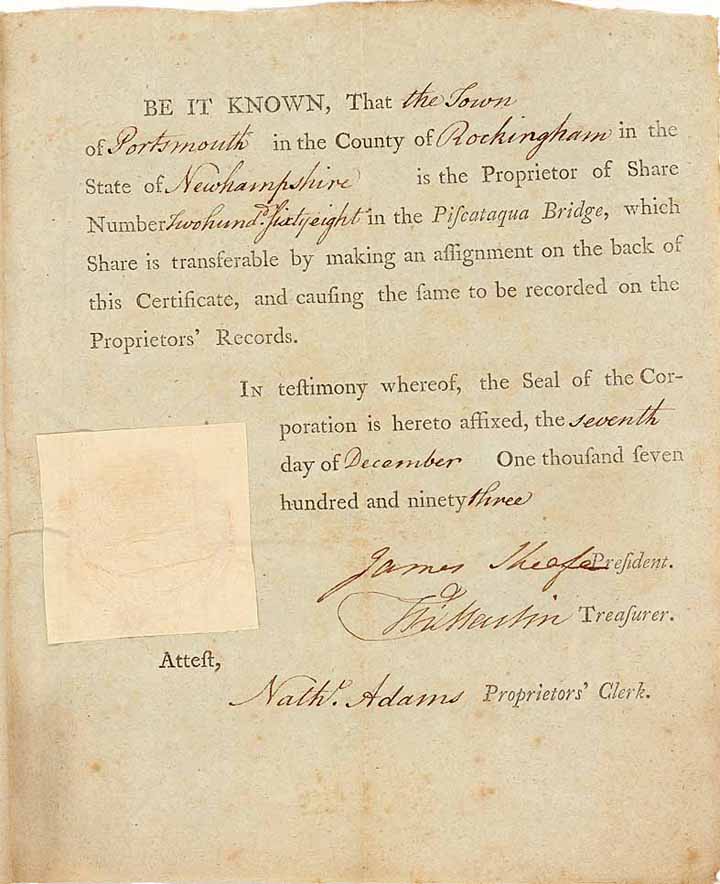 BE IT KNOWN, That the Town
of Portsmouth in the County of Rockingham in the
State of Newhampshire is the Proprietor of Share
Number Twohundd. ſixtyeight in the Piſcataqua Bridge, which
Share is transferable by making an aſſignment on the back of
this Certificate, and cauſing the ſame to be recorded on the
Proprietors' Records.
IN teſtimony whereof, the Seal of the Cor-
poration is hereto affixed, the seventh
day of December One thouſand ſeven
hundred and ninety three
James Sheafe Preſident.
Treaſurer.
Atteſt,
Nathl. Adams Proprietors' Clerk.